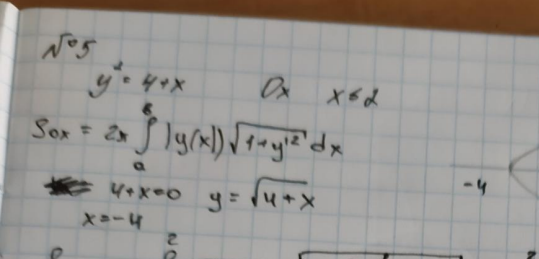 №5
y² = 4+x   Ox   x=2
Sox = 2π ∫ₐᵇ |y(x)| √(1+y'²) dx
4+x=0   y = √(4+x)   -4
x=-4
2